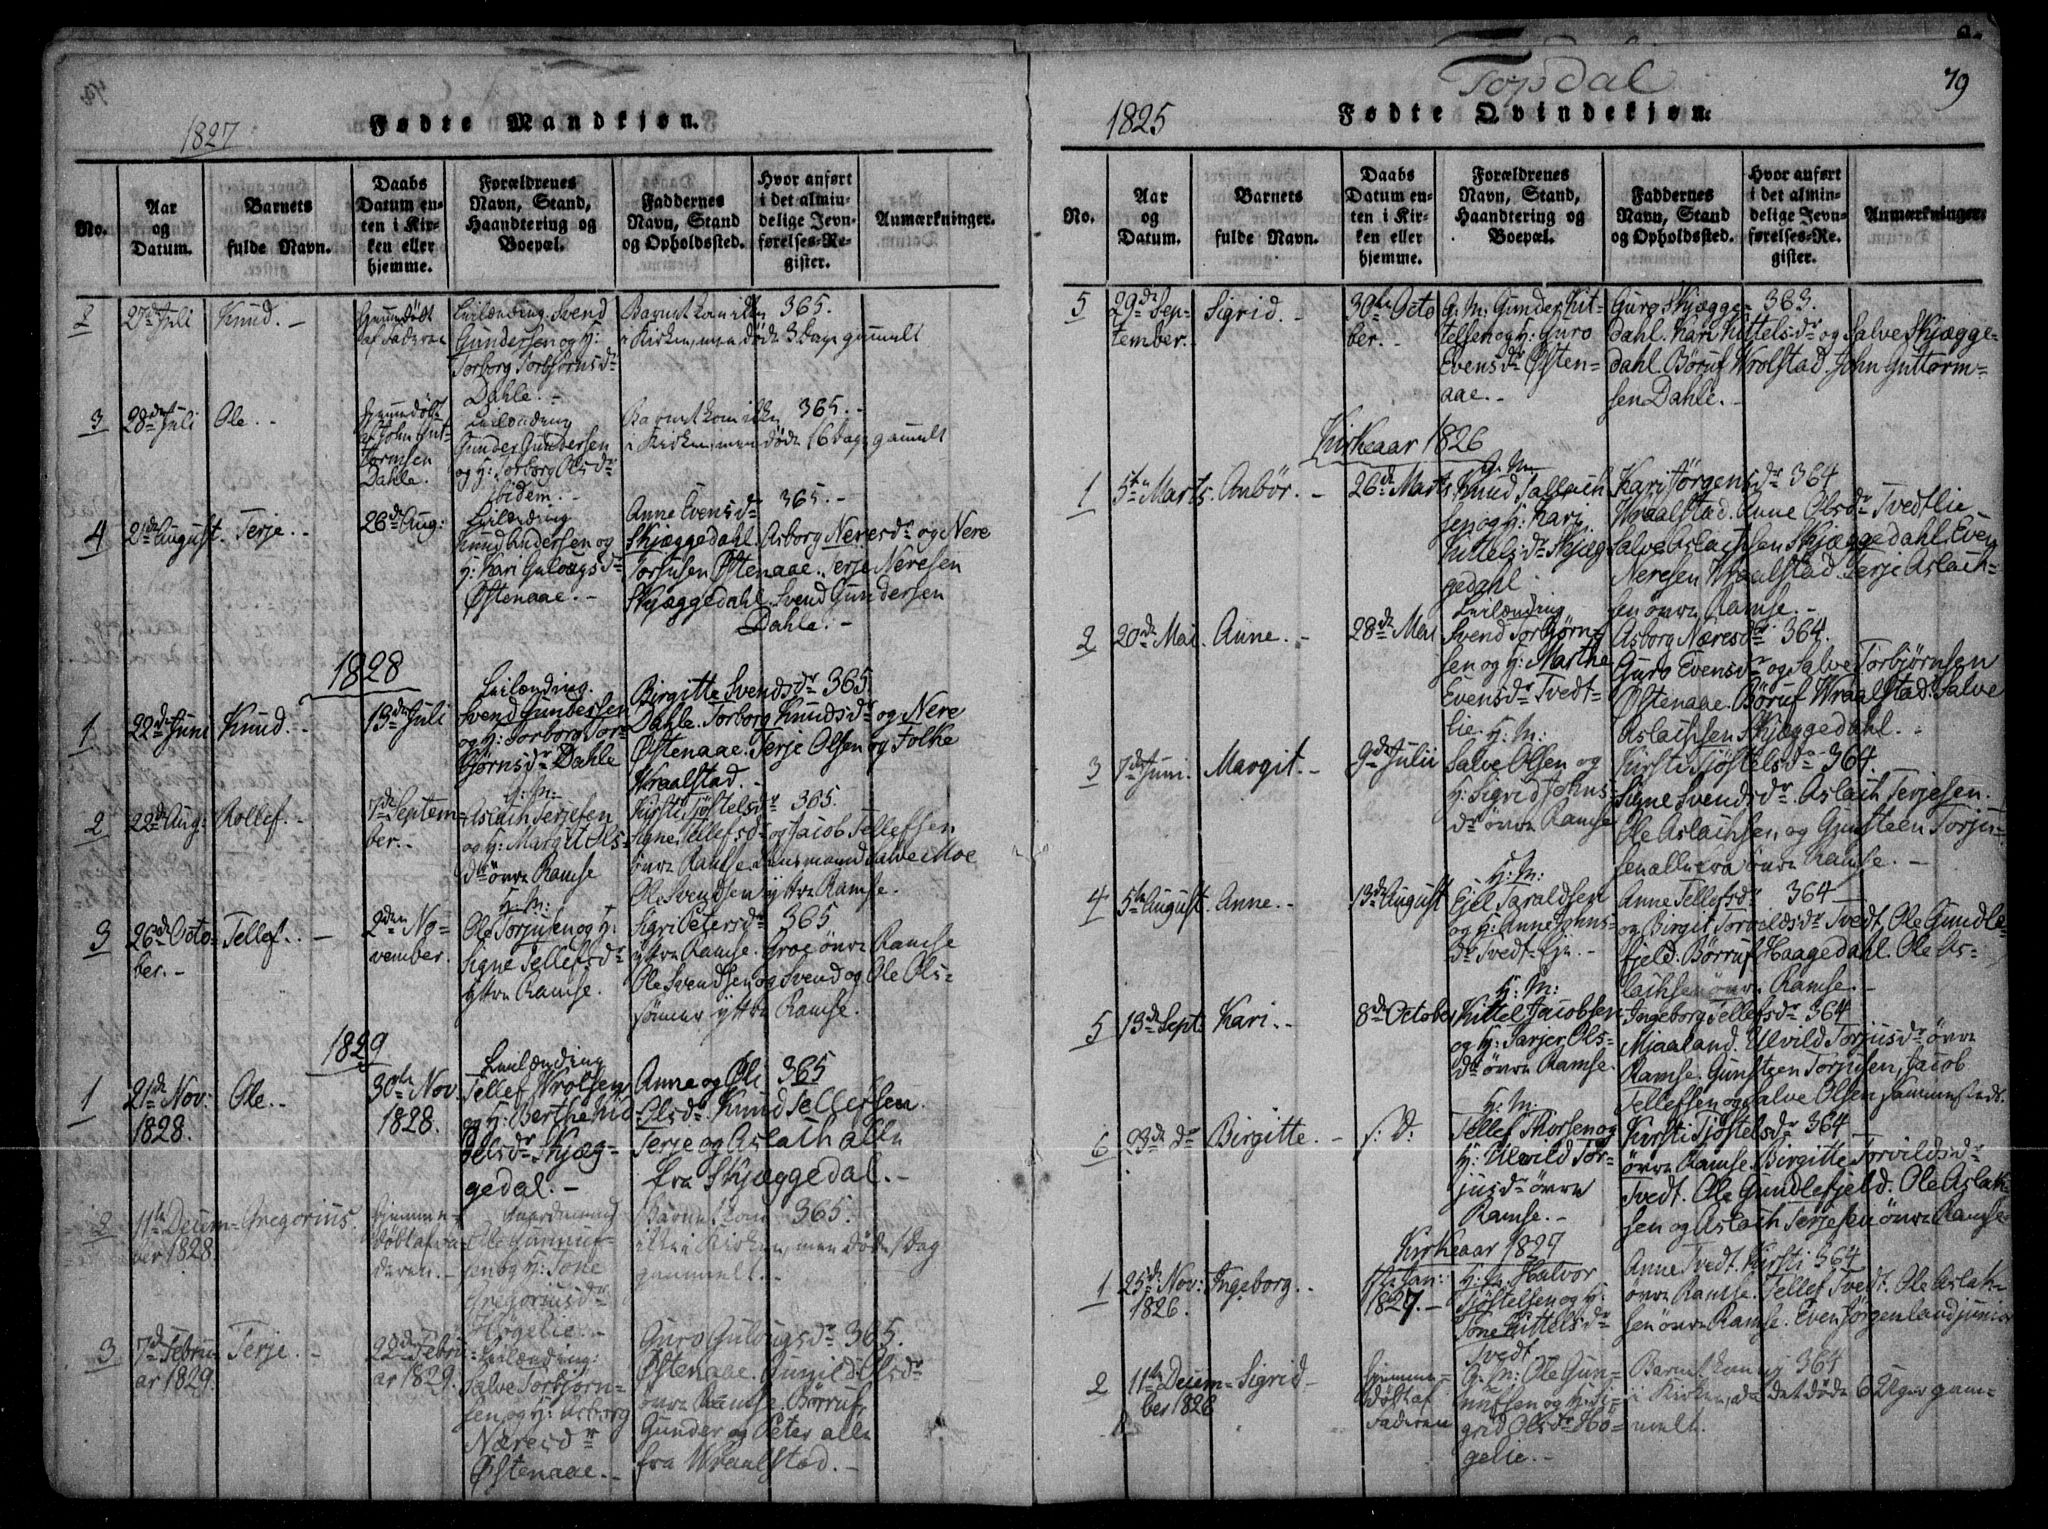 Topdal
79
1827
Fødte Mandkjøn.
No.
Aar og Datum.
Barnets fulde Navn.
Daabs Datum enten i Kirken eller hjemme.
Forældrenes Navn, Stand, Haandtering og Boepæl.
Faddernes Navn, Stand og Opholdssted.
Hvor anført i det almindelige Jevnførelses-Register.
Anmærkninger.
2 27de Juli Knud. Hjemmedöbt af Faderen
Leilænding Svend
Gundersen og H:
Torborg Torbjörnsdr
Dahle.
Barnet kom ikke 365.
i Kirken, men døde 3 Dage gammelt
3 28de Juli Ole. Hjemmedöbt af John Guttormsen Dahle.
Leilænding
Gunder Gundersen
og H: Torborg Olsdr
ibidem.
Barnet kom ikke 365.
i Kirken, men døde 16 Dage gammelt
4 2de August. Terje. 26de Aug:
Leilænding
Knud Andersen og
H: Kari Gulougsdr
Østenaae.
Anne Evensdr 365.
Skjæggedahl. Asborg Neresdr og Nere
Torjusen Østenaae. Terje Neresen
Skjæggedahl. Svend Gundersen
Dahle.
1828
1 22de Juni Knud. 13de Juli
Leilænding.
Svend Gundersen
og H: Torborg Torbjörnsdr Dahle
Birgitte Svendsdr 365.
Dahle. Torborg Knudsdr og Nere
Østenaae. Terje Olsen og Folke
Wraalstad.
2 22de Aug: Rollef. 7de September.
G: M:
Aslach Terjesen
og H: Margit Olsdr øvre Ramse
Kirsti Tjöstelsdr 365.
Signe Tellefsdr og Jacob Tellefsen
øvre Ramse. Lensmand Salve Moe
Ole Svendsen yttre Ramse.
3 26de October. Tellef. 2den November.
H: M:
Ole Torjusen og H:
Signe Tellefsdr
yttre Ramse.
Sigri Petersdr 365
yttre Ramse. Groe øvre Ramse
Ole Svendsen og Svend og Ole Olssønner yttre Ramse.
1829
1 21de Nov: 1828. Ole. 30te Nov 1828.
Leilænding
Tellef Wrolsen
og H: Berthe Kittelsdr Skjæggedal.
Anne og Oli 365
Olsdr. Knud Tellefsen
Terje og Aslach alle
fra Skjæggedal.
2 11te December 1828. Gregorius. Hjemmedöbt af Faderen.
Ole Gunnufsen og H: Tone
Gregoriusdr
Høgelie.
Barnet kom 365.
ikke i Kirken, men døde 1 Dag
gammelt.
3 7de Februar 1829. Terje. 22de Februar 1829.
Leilænding:
Salve Torbjörnsen og H: Asborg
Næresdr
Østenaae.
Guro Gulougsdr 365.
Østenaae. Gunild Olsdr
øvre Ramse. Börruf,
Gunder og Peter alle
fra Wraalstad.
1825
Fødte Qvindekjøn.
No.
Aar og Datum.
Barnets fulde Navn.
Daabs Datum enten i Kirken eller hjemme.
Forældrenes Navn, Stand, Haandtering og Boepæl.
Faddernes Navn, Stand og Opholdssted.
Hvor anført i det almindelige Jevnførelses-Re. gister.
Anmærkninger.
5 29de September. Sigrid. 30te October.
G. M. Gunder Kittelsen og H: Guro
Evensdr Østenaae.
Guro Skjægge- 363.
dahl. Kari Kittelsdr og Salve Skjæggedahl. Böruf Wrolstad. John Guttormsen Dahle.
Kirkeaar 1826
1 5te Marts. Anbör. 26de Marts.
G. M.
Knud Tallachsen og H: Kari
Kittelsdr Skjæggedahl
Kari Jörgensdr 364
Wraalstad. Anne Olsdr Tvedtlie
Salve Aslachsen Skjæggedahl. Even
Neresen Wraalstad. Terje Aslachsen øvre Ramse.
2 20de Mai. Anne. 28de Mai
Leilænding
Svend Torbjörnsen og H: Marthe
Evensdr Tvedtlie.
Asborg Næresdr 364.
Guro Evensdr og Salve Torbjörnsen
Østenaae. Böruf Wraalstad. Salve
Aslachsen Skjæggedahl.
3 7de Juni. Margit. 9de Julii
H: M:
Salve Olsen og
H: Sigrid Johnsdr øvre Ramse
Kirsti Tjöstelsdr 364
Signe Svendsdr. Aslach Terjesen.
Ole Aslachsen, og Gunsteen Torjusen alle fra øvre Ramse.
4 5te August. Anne. 13de August
H: M:
Ejel Taraldsen
og H: Anne Johnsdr Tvedt Eje.
Anne Tellefsdr 364
og Birgit Torvildsdr Tvedt. Ole Gundlefjeld. Börruf Haagedahl. Ole Aslachsen øvre Ramse.
5 13de Sept: Kari. 8de October
H: M:
Kittel Jacobsen
og H: Tarjer Olsdr øvre Ramse.
Ingeborg Tellefsdr 364
Mjaaland. Ulvild Torjusdr øvre
Ramse. Gunsteen Torjusen, Jacob
Tellefsen og Salve Olsen sammesteds.
6 23de dr Birgitte. s: D:
H: M:
Tellef Thorsen og
H: Ulvild Torjusdr øvre
Ramse.
Kirsti Tjöstelsdr 364
øvre Ramse. Birgitte Torvildsdr
Tvedt. Ole Gundlefjeld. Ole Aslaksen og Aslach Terjesen øvre Ramse
Kirkeaar 1827
1 25de Nov: 1826. Ingeborg. 1ste Jan: 1827.
H: M: Halvor
Tjöstelsen og H:
Tone Kittelsdr
Tvedt
Anne Tvedt. Kirsti 364
øvre Ramse. Tellef Tvedt. Ole Aslaksen øvre Ramse. Even Jörgenland junior
2 11te December 1826 Sigrid Hjemmedöbt af Faderen
G. M: Ole Gunnufsen og H: Sigrid Olsdr Høgelie.
Barnet kom ej 364
i Kirken, da det døde 6 Uger gammelt.